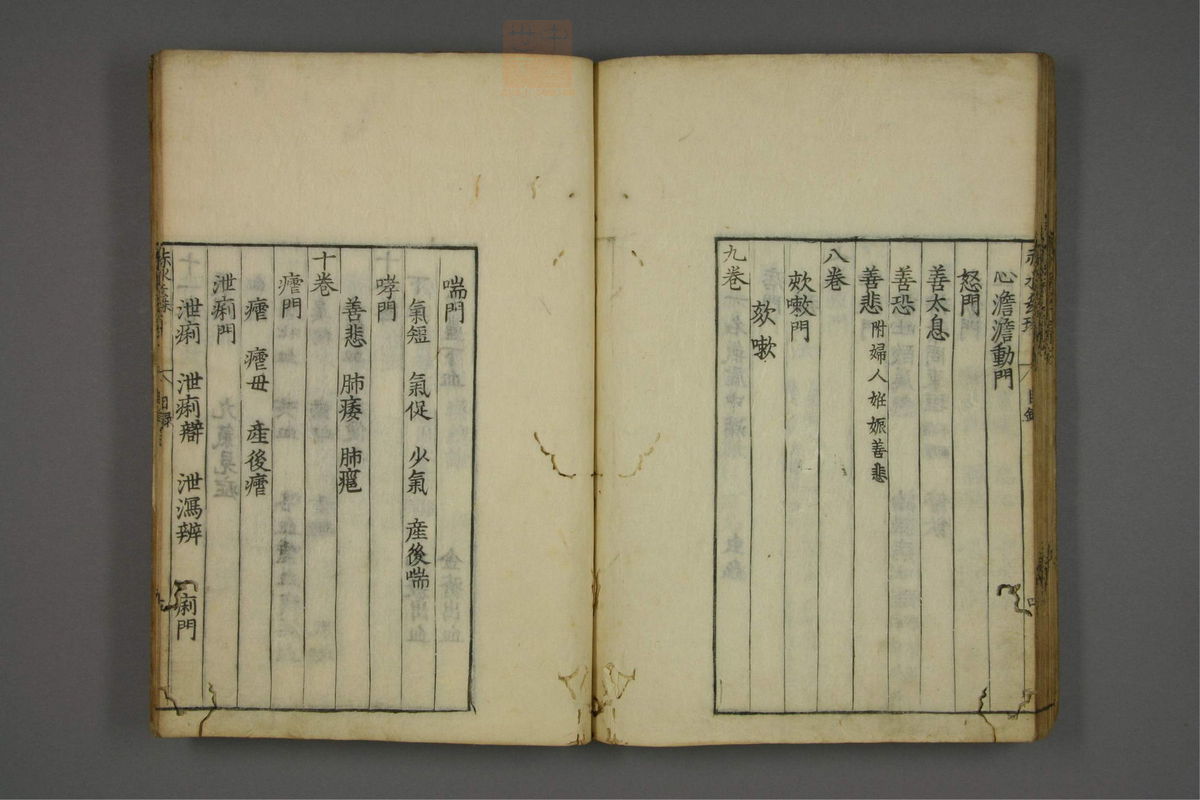 心澹澹動門
怒門
善太息
善恐
善悲附婦人姙娠善悲
八卷
欬嗽門
欬嗽
九卷
喘門
氣短 氣促 少氣 產後喘
哮門
善悲 肺痿 肺癰
十卷
瘧門
瘧 瘧母 產後瘧
泄痢門
泄痢 泄痢辯 泄瀉辨 痢門
目錄